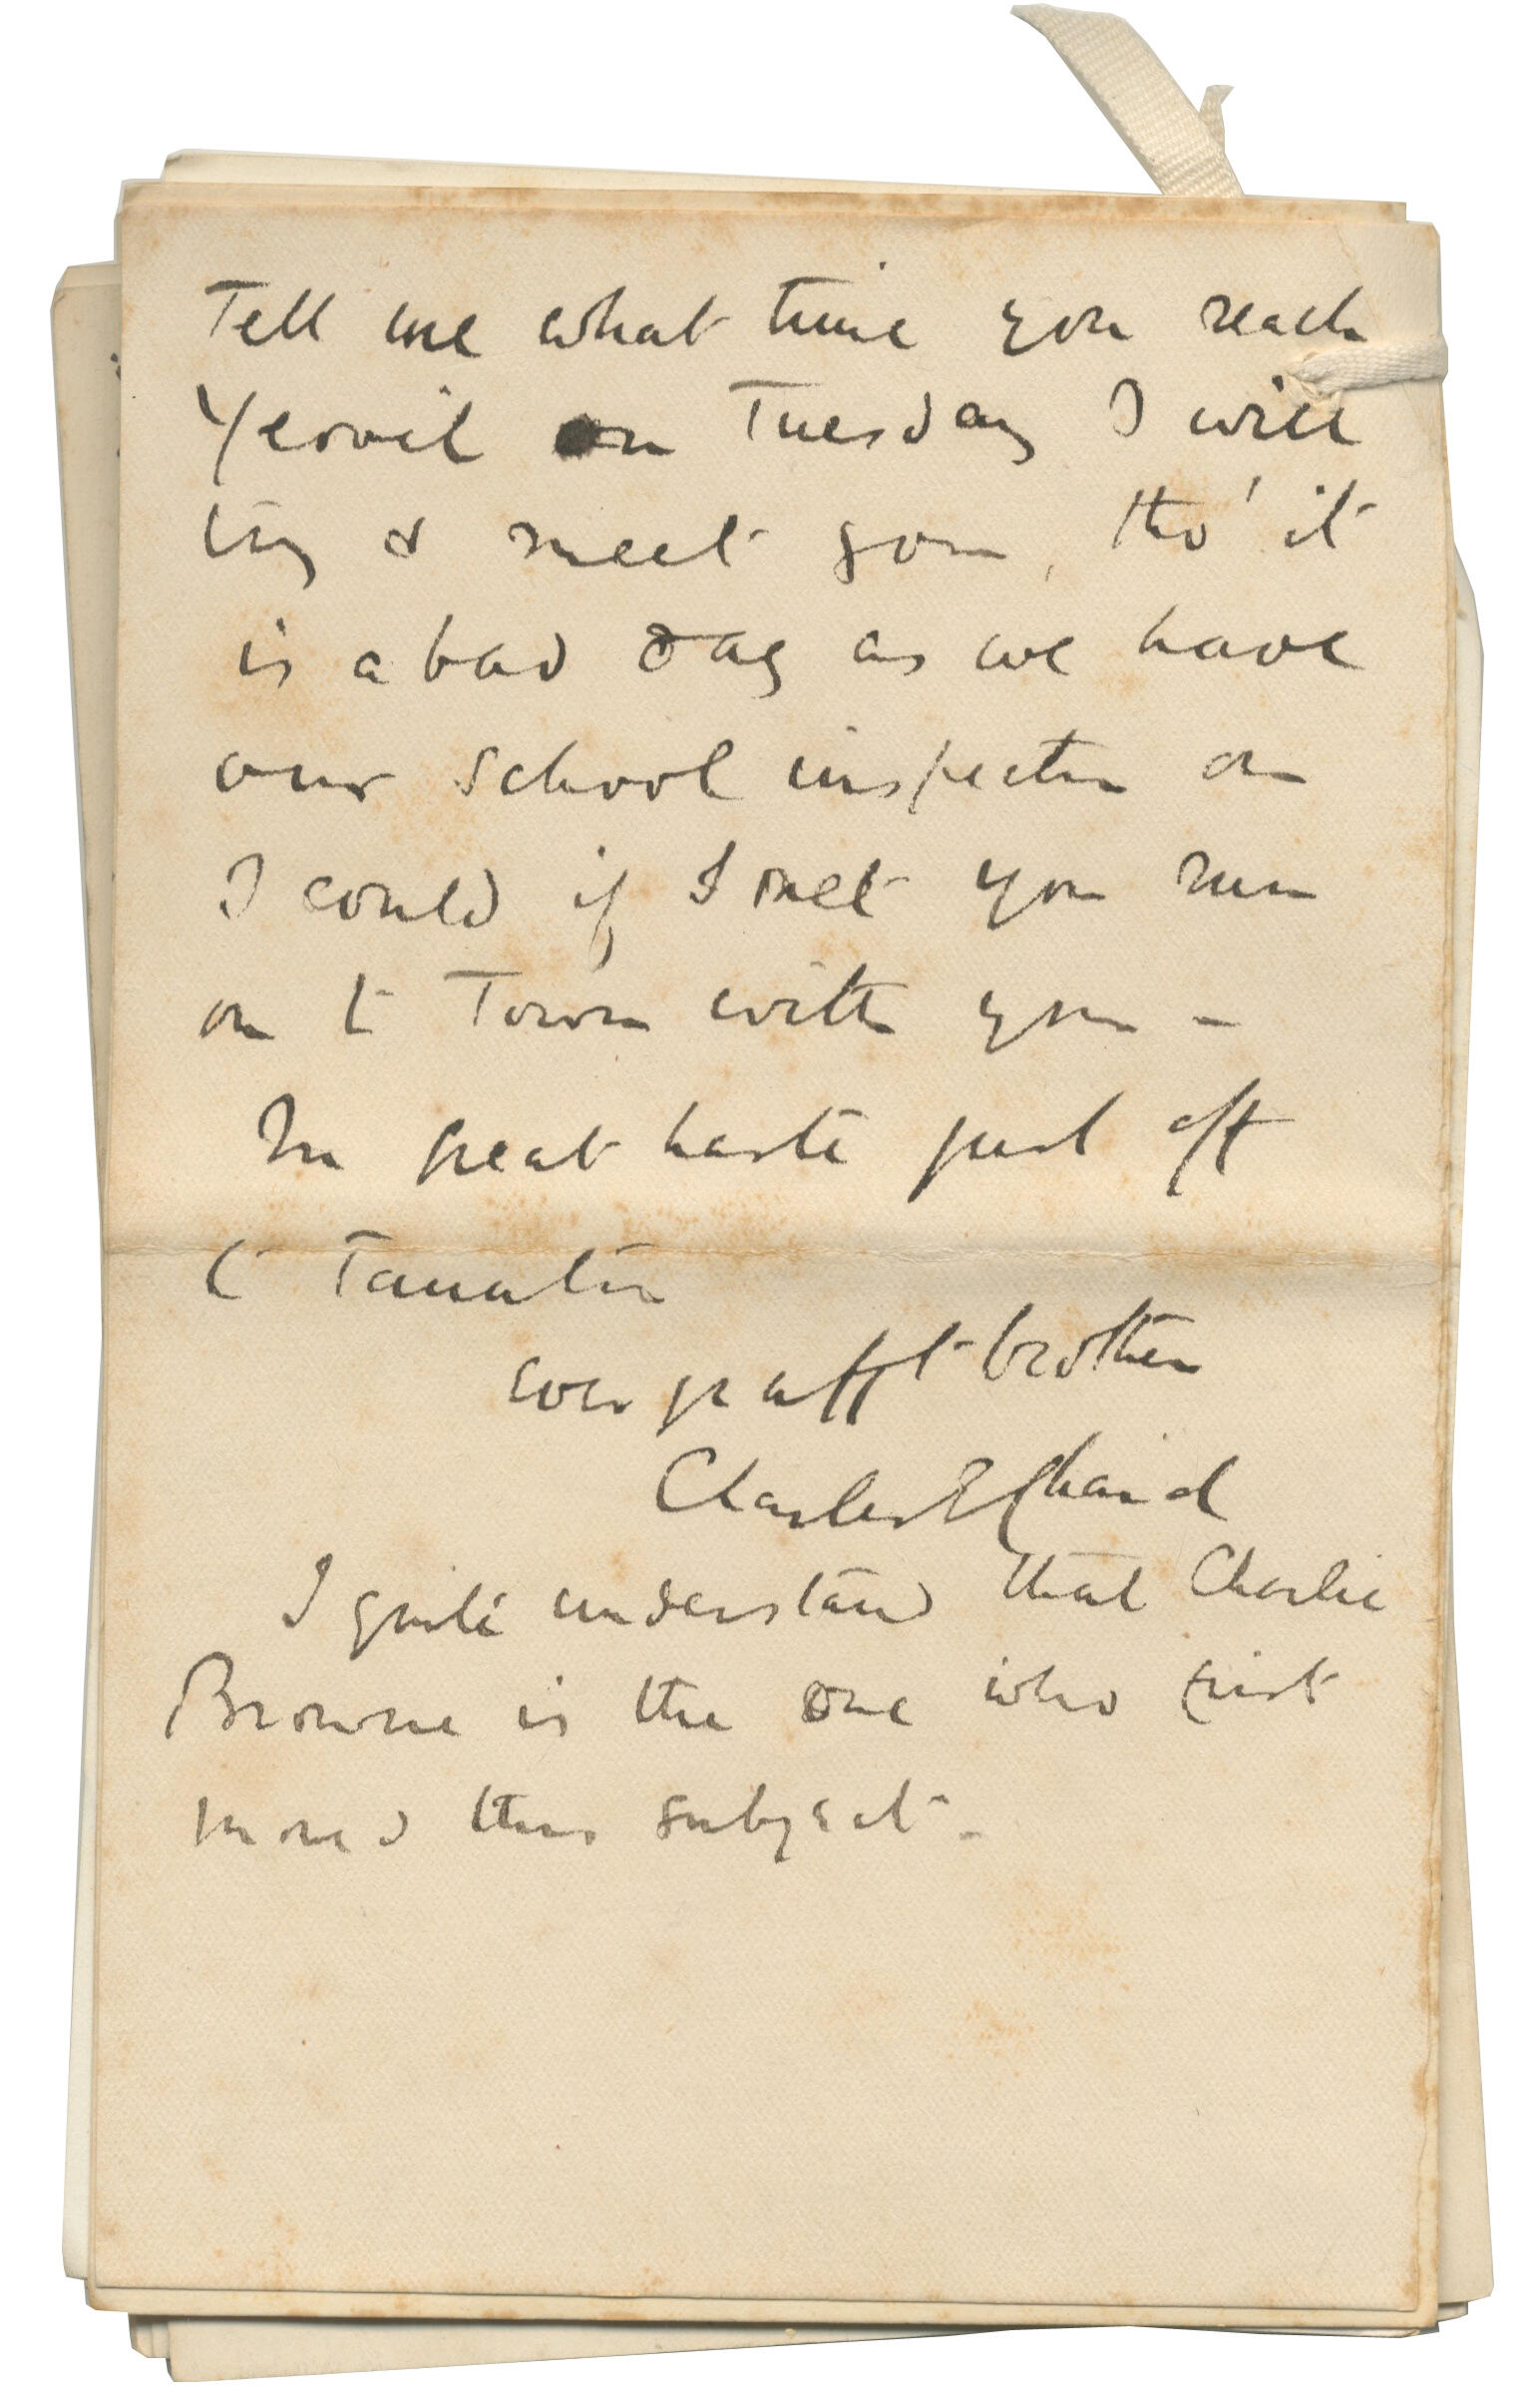 Tell me what time you reach
Yeovil on Tuesday I will
try & meet you, tho' it
is a bad day as we have
our school inspector or
I could if I met you run
on to Town with you -
In great haste just off
to Taunton
ever yr afft brother
Charles E
I quite understand that Charlie
Browne is the one who first
moved this subject -